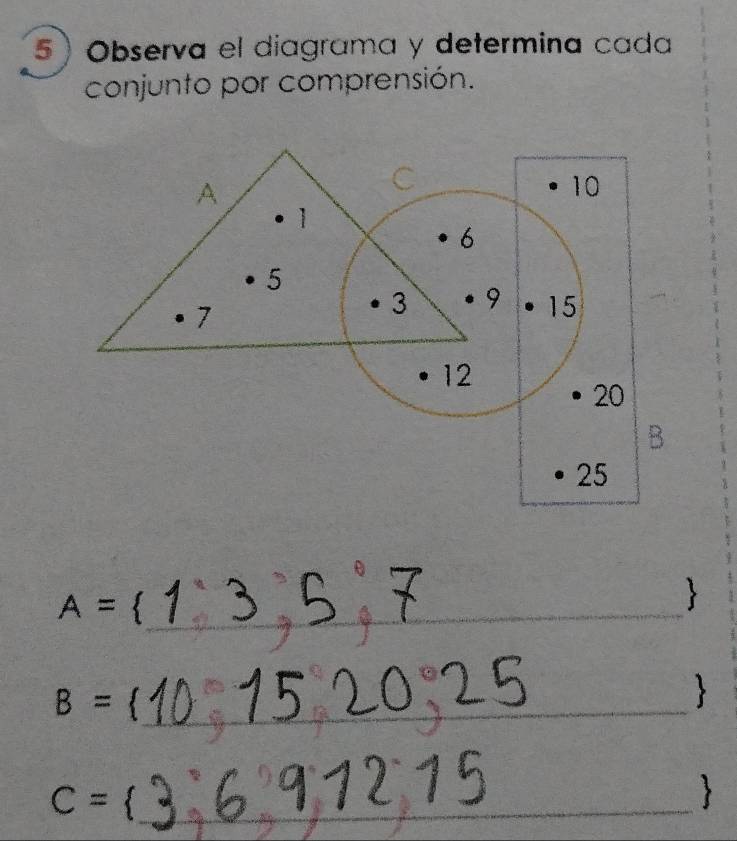 5 Observa el diagrama y determina cada
conjunto por comprensión.
A
C
• 10
• 1
• 6
• 5
• 3
• 9
• 15
• 7
• 12
• 20
B
• 25
A = { 1; 3; 5; 7 }
B = { 10; 15; 20; 25 }
C = { 3; 6; 9; 12; 15 }